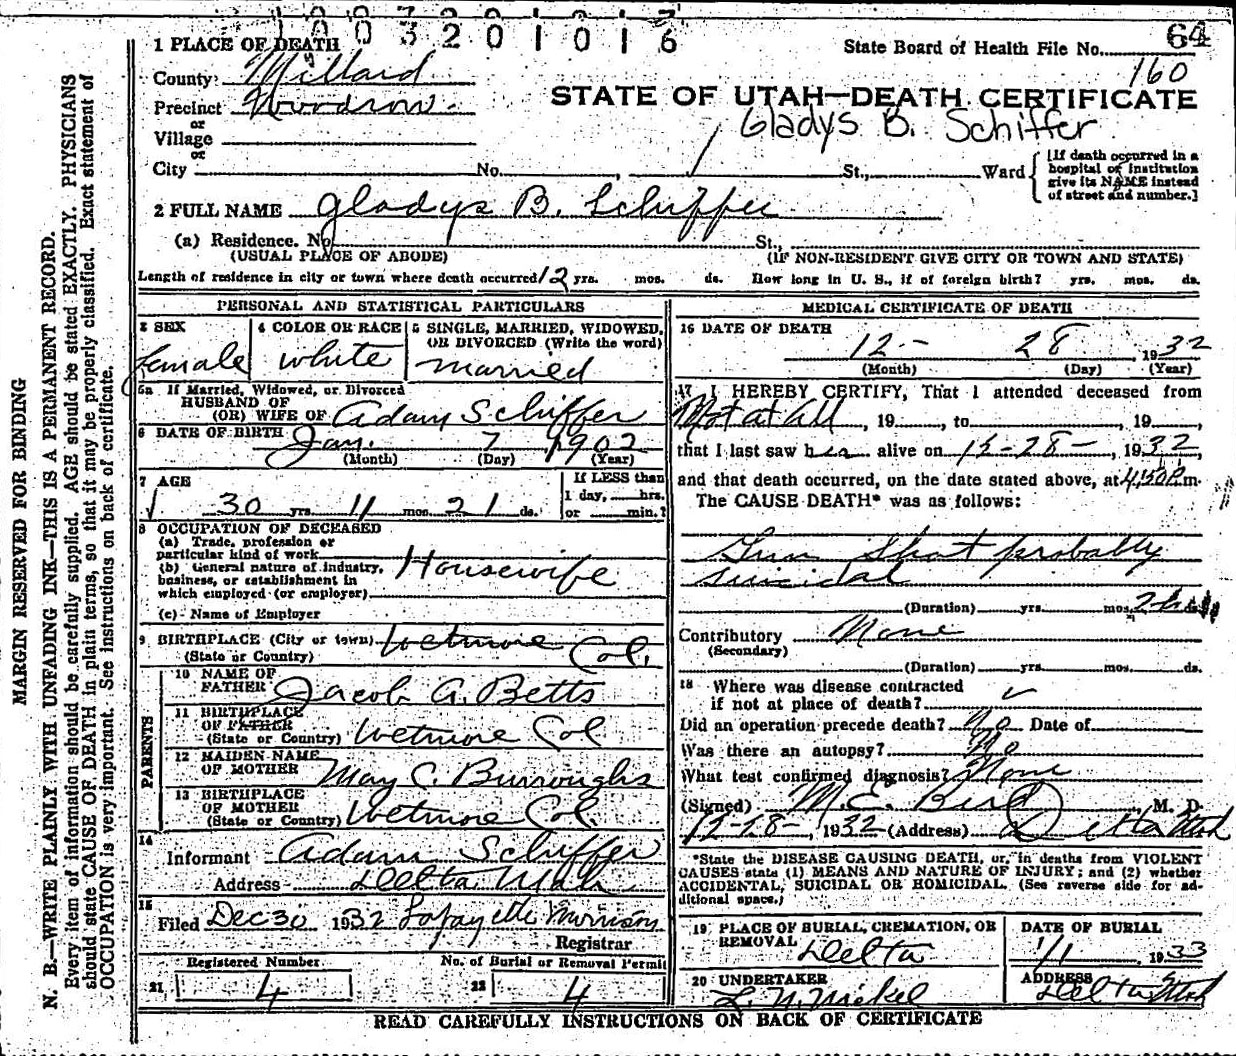 0 0 3 2 0 1 0 1 6
64
1 PLACE OF DEATH
State Board of Health File No.
160
County: Millard
Precinct Woodrow
STATE OF UTAH—DEATH CERTIFICATE
or
Village
Gladys B. Schiffer
or
City No. , St., Ward
[If death occurred in a
hospital of institution
give its NAME instead
of street and number.]
2 FULL NAME Gladys B. Schiffer
(a) Residence. No. St.,
(USUAL PLACE OF ABODE) (IF NON-RESIDENT GIVE CITY OR TOWN AND STATE)
Length of residence in city or town where death occurred 12 yrs. mos. ds. How long in U. S., if of foreign birth? yrs. mos. ds.
PERSONAL AND STATISTICAL PARTICULARS
3 SEX 4 COLOR OR RACE 5 SINGLE, MARRIED, WIDOWED,
OR DIVORCED (Write the word)
female white married
5a If Married, Widowed, or Divorced
HUSBAND OF
(OR) WIFE OF Adam Schiffer
6 DATE OF BIRTH Jan. 7 1902
(Month) (Day) (Year)
7 AGE If LESS than
1 day, hrs.
30 yrs. 11 mos. 21 ds. or min.?
8 OCCUPATION OF DECEASED
(a) Trade, profession or
particular kind of work
(b) General nature of industry,
business, or establishment in
which employed (or employer)
Housewife
(c) Name of Employer
9 BIRTHPLACE (City or town) Wetmore
(State or Country) Col.
PARENTS
10 NAME OF
FATHER Jacob G. Betts
11 BIRTHPLACE
OF FATHER
(State or Country) Wetmore Col
12 MAIDEN NAME
OF MOTHER May C. Burroughs
13 BIRTHPLACE
OF MOTHER
(State or Country) Wetmore Col.
14
Informant Adam Schiffer
Address Delta Utah
15
Filed Dec 30 1932 Lafayette Morrison
Registrar
Registered Number No. of Burial or Removal Permit
21 4 22 4
MEDICAL CERTIFICATE OF DEATH
16 DATE OF DEATH
12 - 28 , 1932
(Month) (Day) (Year)
17 I HEREBY CERTIFY, That I attended deceased from
Not at all , 19 , to , 19 ,
that I last saw her alive on 12-28- , 1932,
and that death occurred, on the date stated above, at 4:50 P.m.
The CAUSE DEATH* was as follows:
Gun Shot probably
suicidal
(Duration) yrs. mos.
Contributory None
(Secondary)
(Duration) yrs. mos. ds.
18 Where was disease contracted
if not at place of death?
Did an operation precede death? No Date of
Was there an autopsy? No
What test confirmed diagnosis? None
(Signed) M. E. Bird , M. D.
12-28- , 1932 (Address) Delta Utah
*State the DISEASE CAUSING DEATH, or, in deaths from VIOLENT
CAUSES state (1) MEANS AND NATURE OF INJURY; and (2) whether
ACCIDENTAL, SUICIDAL OR HOMICIDAL. (See reverse side for ad-
ditional space.)
19 PLACE OF BURIAL, CREMATION, OR
REMOVAL Delta
DATE OF BURIAL
1/1 , 1933
20 UNDERTAKER
L. N. Nickel
ADDRESS
Delta Utah
READ CAREFULLY INSTRUCTIONS ON BACK OF CERTIFICATE
MARGIN RESERVED FOR BINDING
N. B.—WRITE PLAINLY WITH UNFADING INK—THIS IS A PERMANENT RECORD.
Every item of information should be carefully supplied. AGE should be stated EXACTLY. PHYSICIANS
should state CAUSE OF DEATH in plain terms, so that it may be properly classified. Exact statement of
OCCUPATION is very important. See instructions on back of certificate.